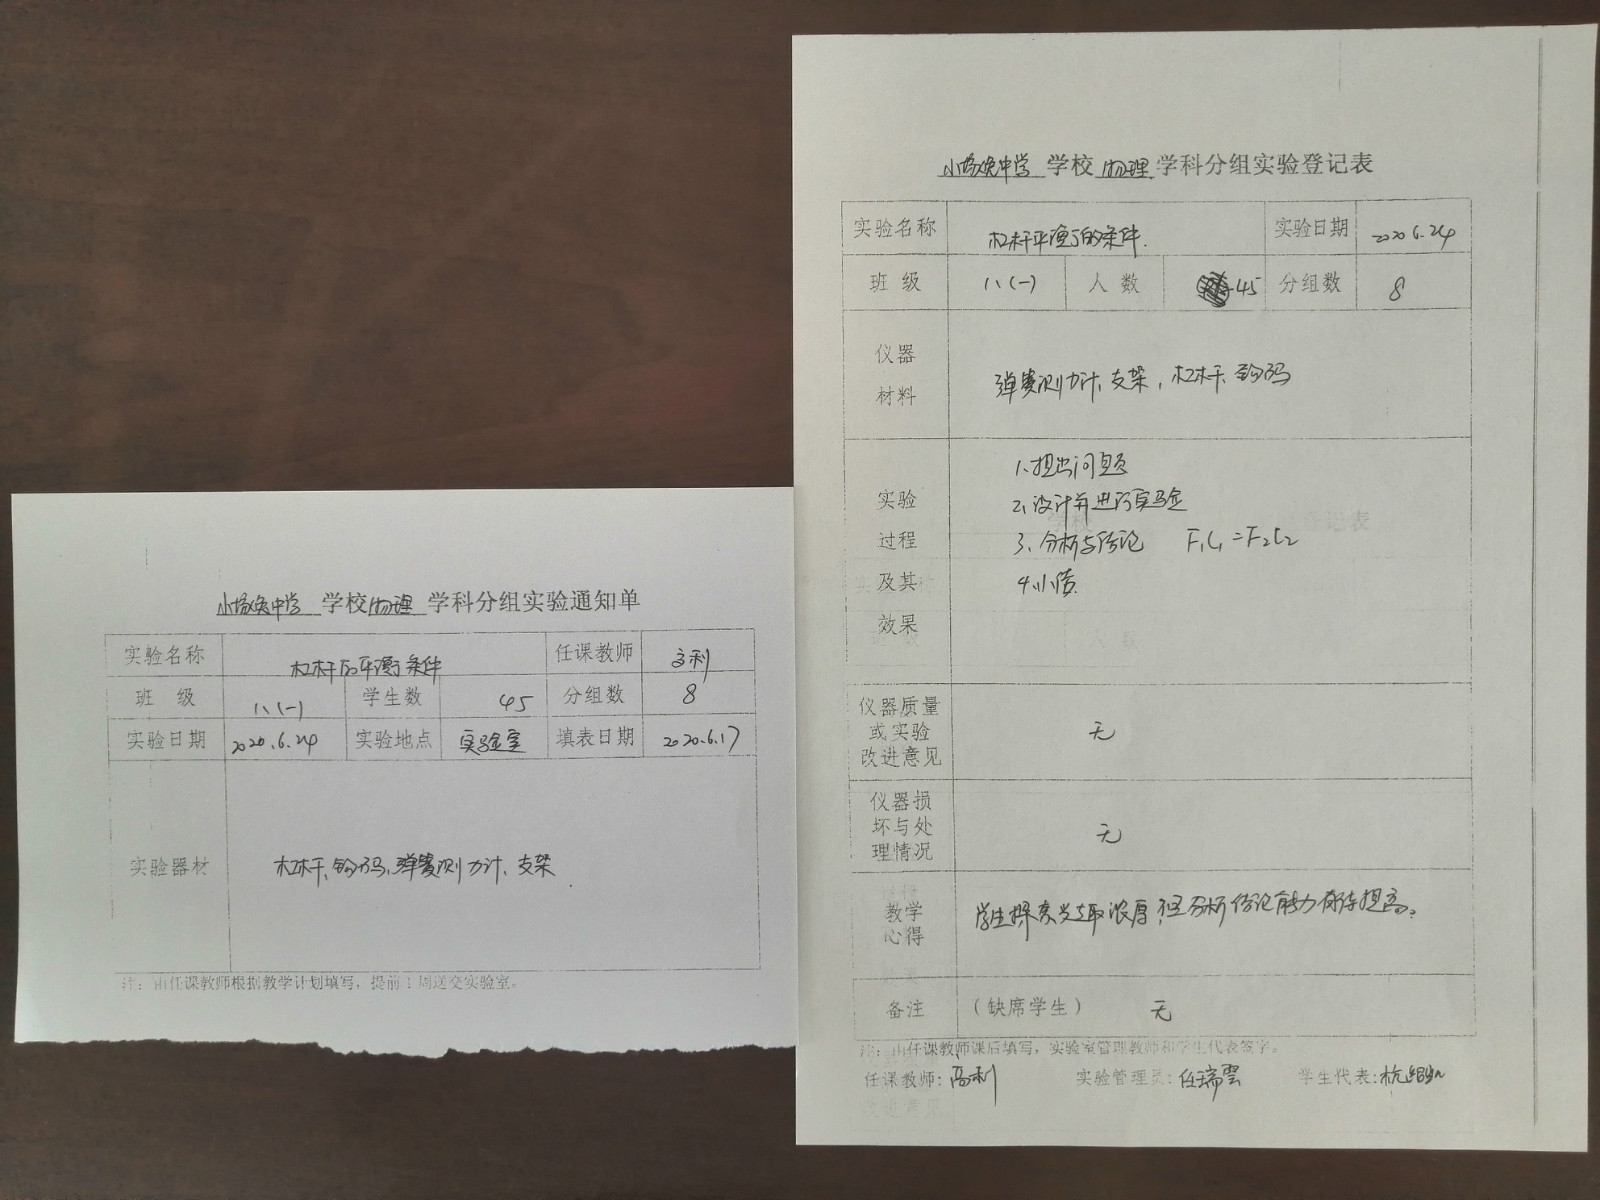 学校物理 学科分组实验通知单
实验名称 杠杆的平衡条件 任课教师 高利
班 级 八(一) 学生数 45 分组数 8
实验日期 2020.6.24 实验地点 实验室 填表日期 2020.6.17
实验器材 杠杆、钩码、弹簧测力计、支架
注：由任课教师根据教学计划填写，提前1周送交实验室。
学校 物理 学科分组实验登记表
实验名称 杠杆平衡的条件. 实验日期 2020 6.24
班 级 八(一) 人 数 45 分组数 8
仪器
材料
弹簧测力计、支架，杠杆、钩码
实验
过程
及其
效果
1、提出问题
2、设计并进行实验
3、分析与结论 F₁L₁=F₂L₂
4、小结
仪器质量
或实验
改进意见
无
仪器损
坏与处
理情况
无
教学
心得
学生探索兴趣浓厚,但分析结论能力有待提高。
备注 (缺席学生) 无
注：由任课教师课后填写，实验室管理教师和学生代表签字。
任课教师:高利 实验管理员:任瑞雲 学生代表:杭